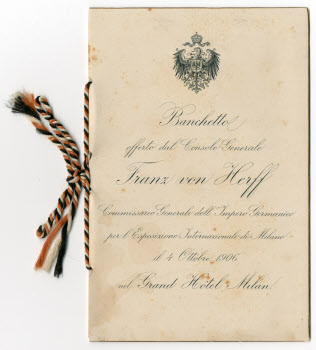 Banchetto
offerto dal Console Generale
Franz von Herff
Commissario Generale dell' Impero Germanico
per l'Esposizione Internazionale di Milano
il 4 Ottobre 1906
nel Grand Hôtel Milan.